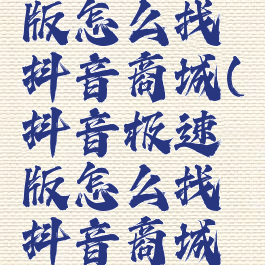 版怎么找
抖音商城(
抖音极速
版怎么找
抖音商城